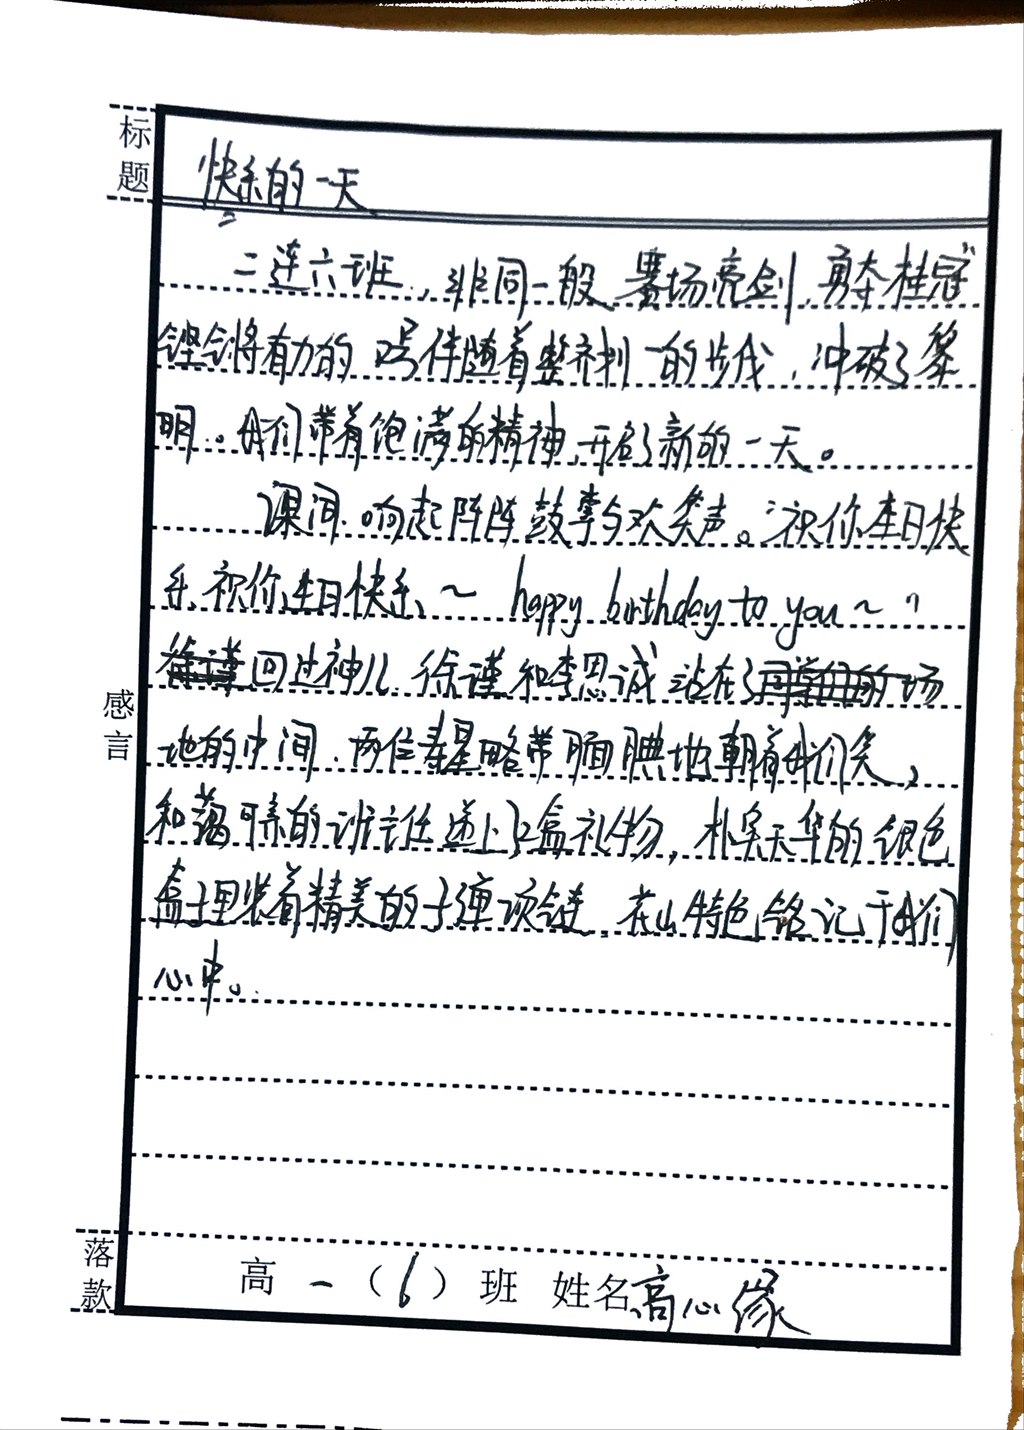 标题
快乐的一天
二连六班,非同一般,赛场亮剑,勇夺桂冠"
铿锵有力的口号伴随着整齐划一的步伐,冲破了黎
明。我们带着饱满的精神,开启了新的一天。
课间,响起阵阵鼓掌与欢笑声。"祝你生日快
乐,祝你生日快乐~ happy birthday to you~"
回过神儿,徐谨和李思诚站在了场
地的中间,两位寿星略带腼腆地朝着我们笑,
和蔼可亲的班主任递上了盒礼物,朴实无华的银色
盒子里装着精美的子弹项链,花山特色铭记于我们
心中。
感言
落款
高一(6)班 姓名高心缘